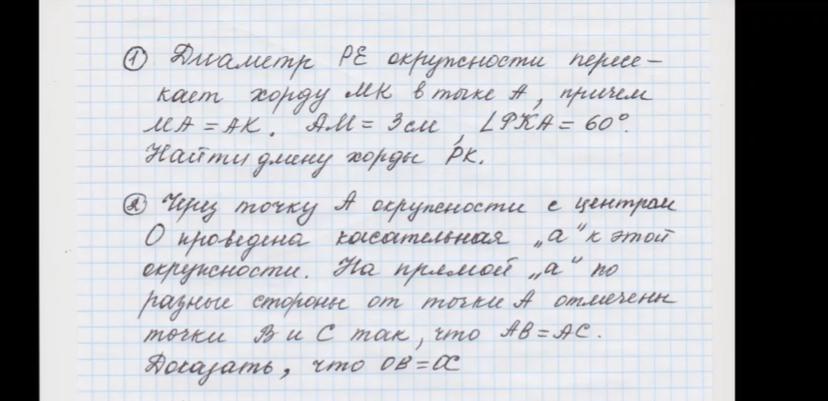 ① Диаметр РЕ окружности пересе-
кает хорду МК в точке А, причем
МА = АК. АМ = 3 см, ∠РКА = 60°.
Найти длину хорды РК.
② Через точку А окружности с центром
О проведена касательная „а" к этой
окружности. На прямой „а" по
разные стороны от точки А отмечены
точки В и С так, что АВ = АС.
Доказать, что ОВ = ОС